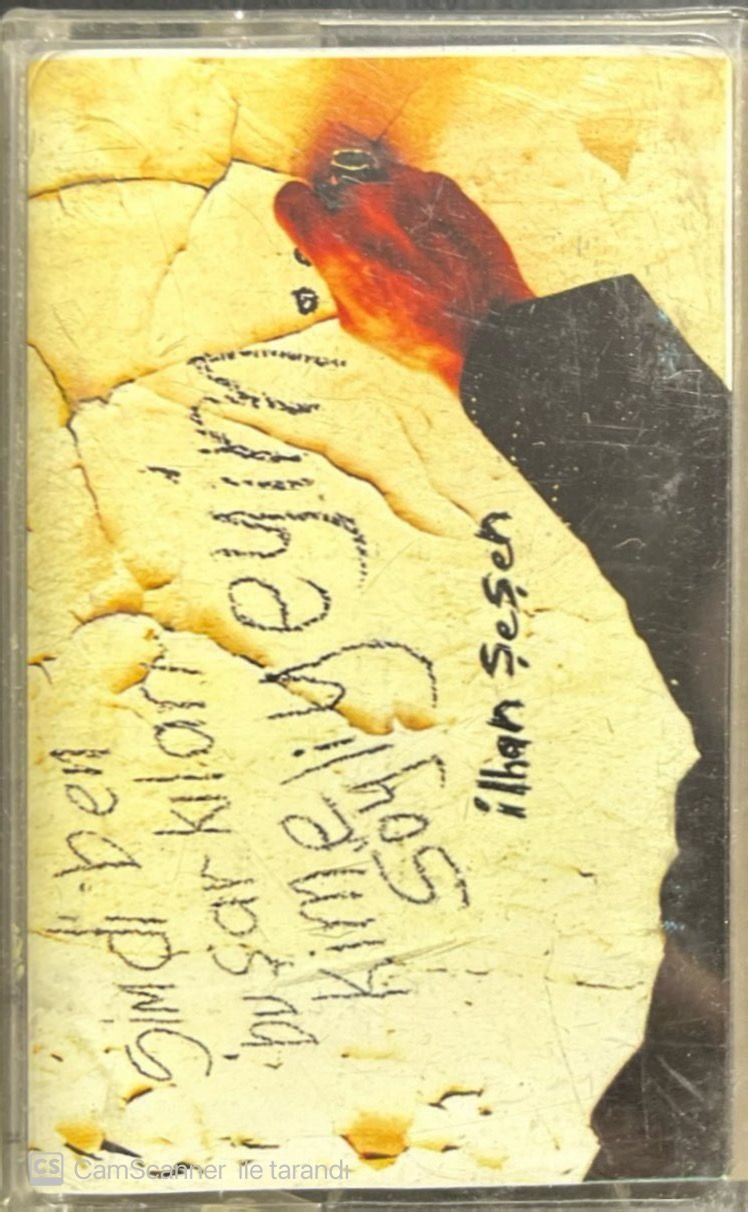 Şimdi ben
bu şarkıları
kime
Söyliyeyim..
ilhan Şeşen
CS CamScanner ile tarandı